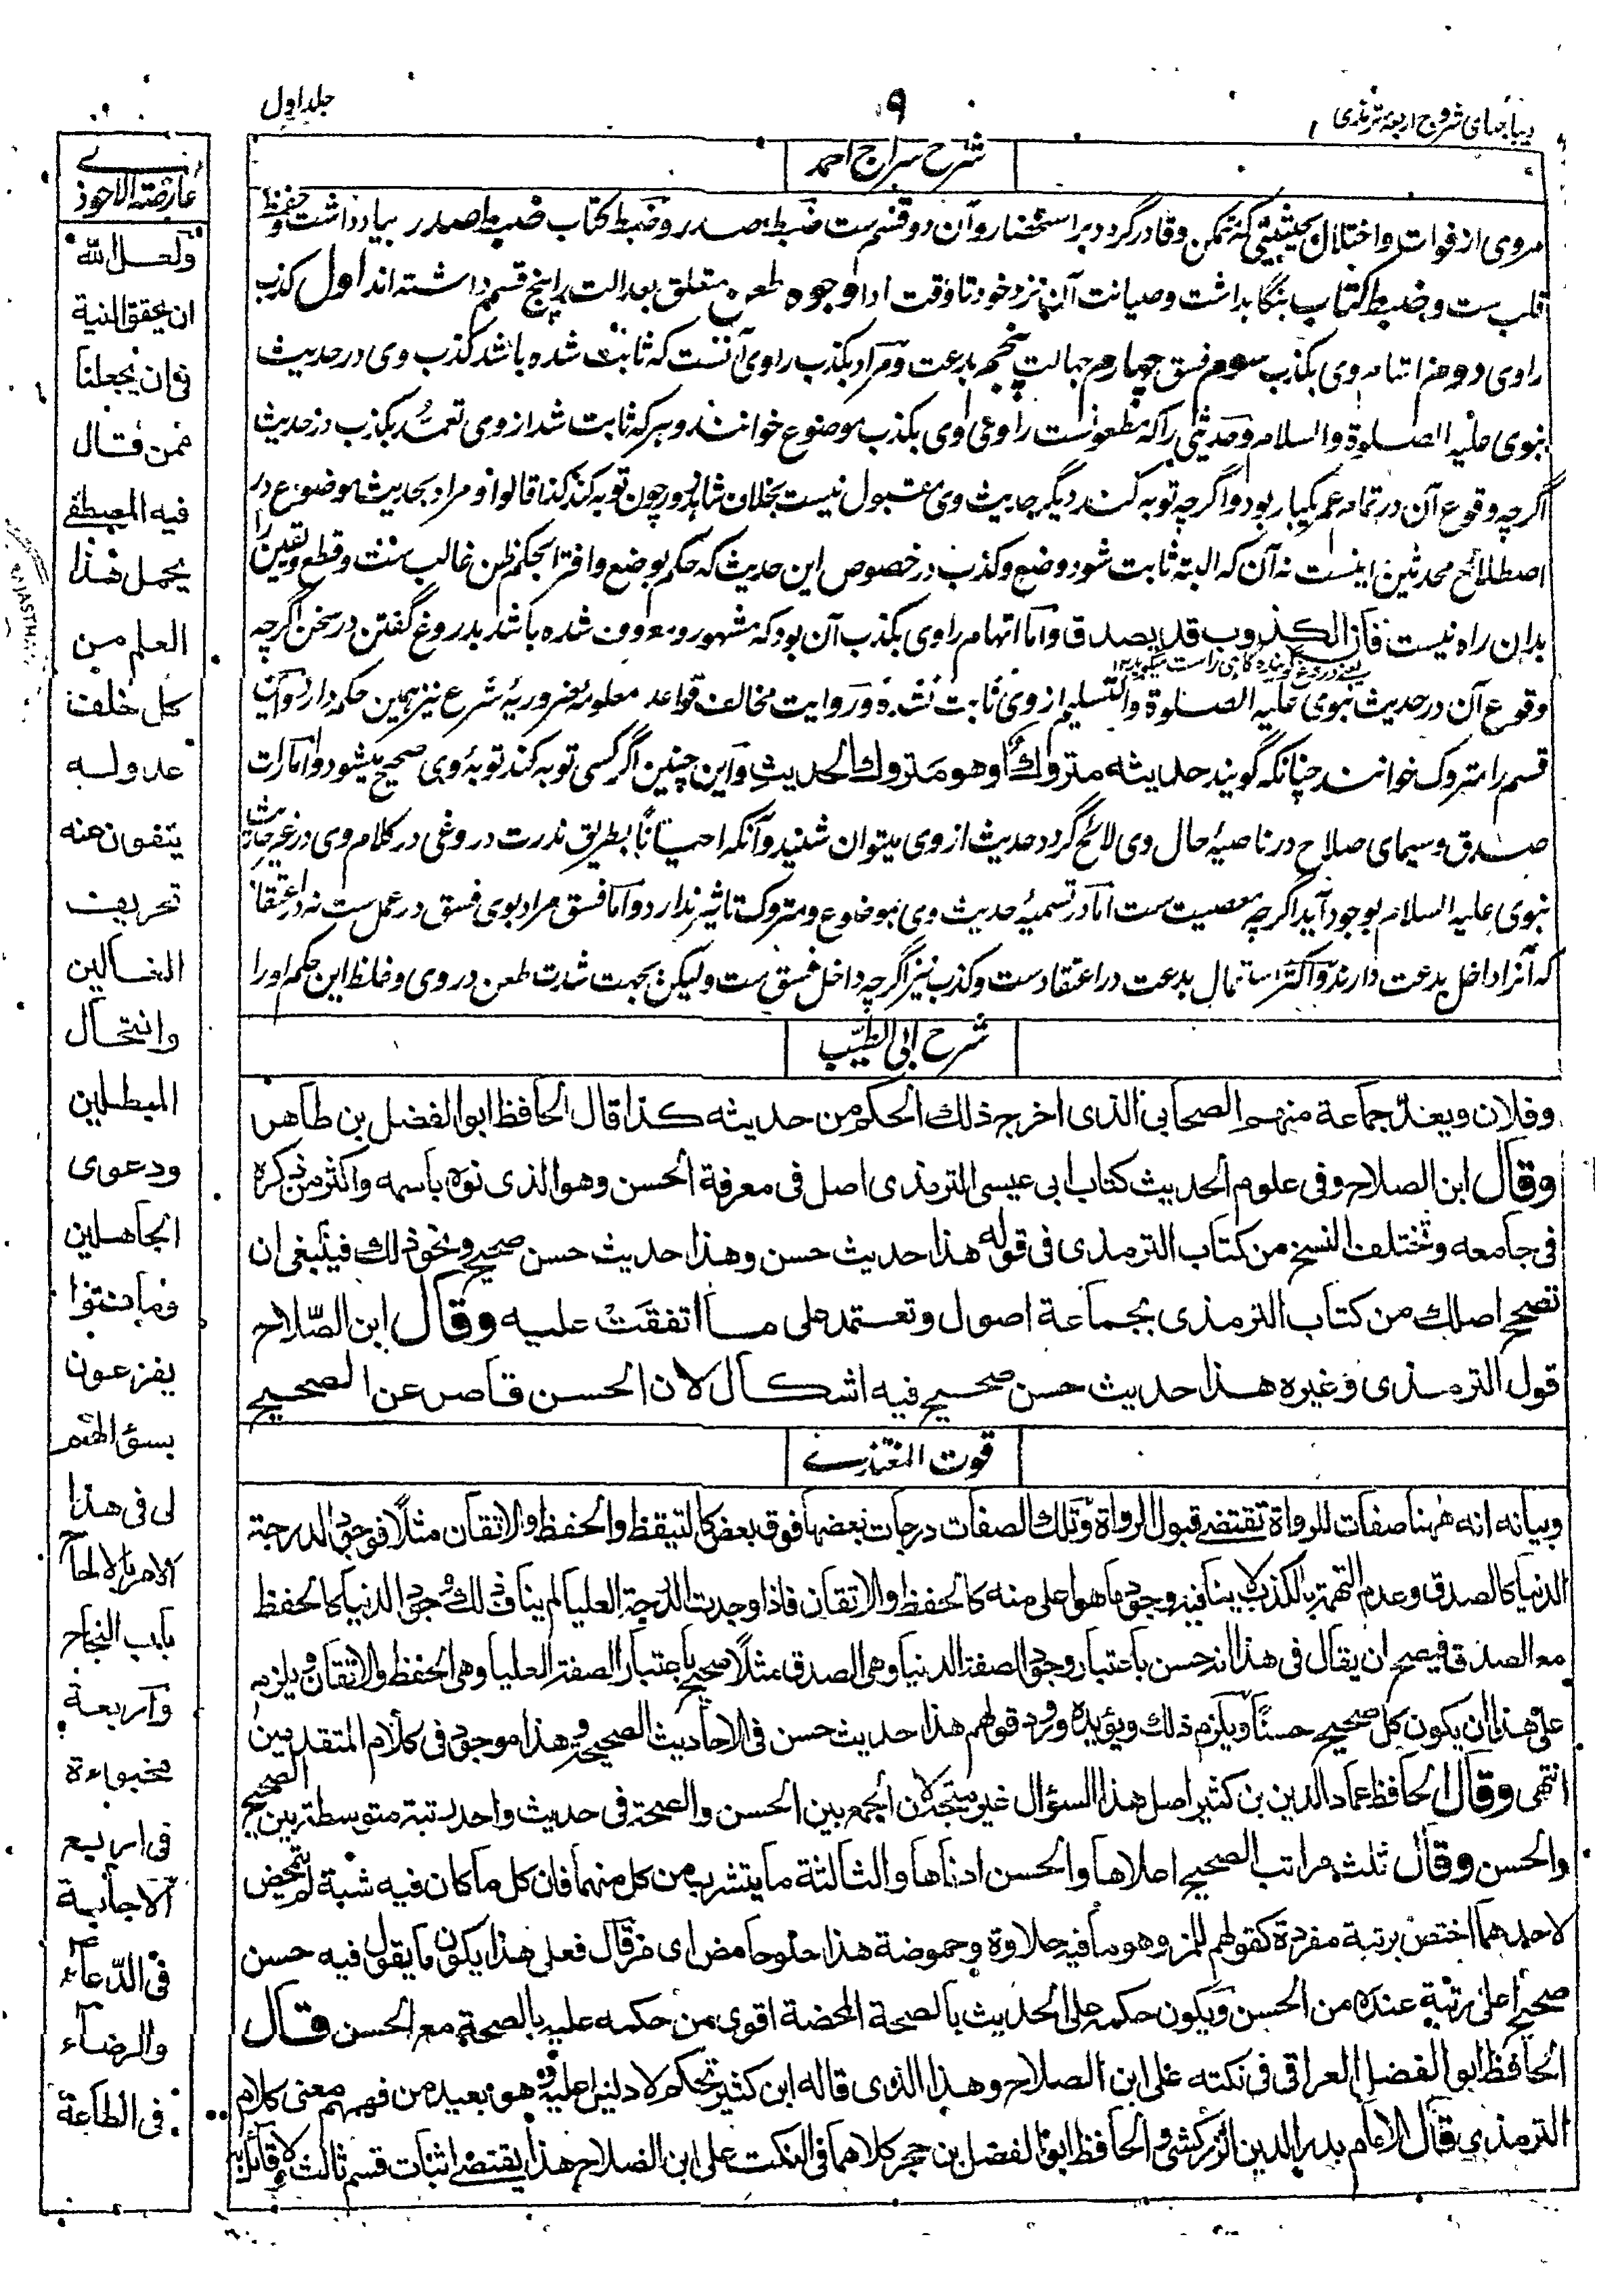 دیباچهای شروح اربعهٔ ترمذی
۹
جلد اول
شرح سراج احمد
مروی از فوات و اختلال بحیثیتی که متمکن و قادر گردد بر استحضار و آن دو قسم ست ضبط صدر و ضبط کتاب ضبط صدر بیاد داشت و حفظ
قلب ست و ضبط کتاب بنگاهداشت و صیانت آن نزد خود تا وقت ادا و وجوه طعن متعلق بعدالت را پنج قسم داشته اند اول کذب
راوی دوم اتهام وی بکذب سوم فسق چهارم جهالت پنجم بدعت و مراد بکذب راوی آنست که ثابت شده باشد کذب وی در حدیث
نبوی علیه الصلوة والسلام و حدیثی را که مطعونست راوی وی بکذب موضوع خوانند و هر که ثابت شد از وی تعمد بکذب در حدیث
اگرچه وقوع آن در تمام عمر یکبار بود و اگرچه توبه کند دیگر حدیث وی مقبول نیست بخلاف شاهد زور چون توبه کند کذا قالوا و مراد بحدیث موضوع در
اصطلاح محدثین اینست نه آن که البته ثابت شود وضع و کذب در خصوص این حدیث که حکم بوضع و افترا بحکم ظن غالب ست و قطع و یقین را
بدان راه نیست فان الکذوب قد یصدق و اما اتهام راوی بکذب آن بود که مشهور و معروف شده باشد بدروغ گفتن در سخن اگرچه
یعنی دروغ گوینده گاهی راست میگوید ۱۲
وقوع آن در حدیث نبوی علیه الصلوة والتسلیم از وی ثابت نشده و روایت مخالف قواعد معلومهٔ ضروریهٔ شرع نیز همین حکم دارد و این
قسم را متروک خوانند چنانکه گویند حدیثه متروك او هو متروك الحدیث و این چنین اگر کسی توبه کند توبهٔ وی صحیح میشود و امارات
صدق و سیمای صلاح در ناصیهٔ حال وی لائح گردد حدیث از وی میتوان شنید و آنکه احیانا بطریق ندرت دروغی در کلام وی در غیر حدیث
نبوی علیه السلام بوجود آید اگرچه معصیت ست اما در تسمیهٔ حدیث وی بموضوع و متروک تاثیر ندارد و اما فسق مراد بوی فسق در عمل ست نه در اعتقاد
که آنرا داخل بدعت دارند و اکثر استعمال بدعت در اعتقادست و کذب نیز اگرچه داخل فسق ست ولیکن بجهت شدت طعن در وی و غلظ این حکم او را
شرح ابی الطیب
وفلان ویعد جماعة منهم الصحابی الذی اخرج ذلك الحکم من حدیثه کذا قال الحافظ ابو الفضل بن طاهر
وقال ابن الصلاح وفی علوم الحدیث کتاب ابی عیسی الترمذی اصل فی معرفة الحسن وهو الذی نوه باسمه واکثر من ذکره
فی جامعه وتختلف النسخ من کتاب الترمذی فی قوله هذا حدیث حسن وهذا حدیث حسن صحیح ونحو ذلك فینبغی ان
تصحح اصلك من کتاب الترمذی بجماعة اصول وتعتمد علی ما اتفقت علیه وقال ابن الصلاح
قول الترمذی وغیره هذا حدیث حسن صحیح فیه اشکال لان الحسن قاصر عن الصحیح
قوت المغتذی
وبیانه انه ههنا صفات للرواة تقتضی قبول الرواة وتلك الصفات درجات بعضها فوق بعض کالتیقظ والحفظ والاتقان مثلا فوجود الدرجة
الدنیا کالصدق وعدم التهمة بالکذب لا ینافیه وجود ما هو اعلی منه کالحفظ والاتقان فاذا وجدت الدرجة العلیا لم یناف ذلك وجود الدنیا کالحفظ
مع الصدق فیصح ان یقال فی هذا انه حسن باعتبار وجود الصفة الدنیا وهی الصدق مثلا صحیح باعتبار الصفة العلیا وهی الحفظ والاتقان ویلزم
علی هذا ان یکون کل صحیح حسنا ویلزم ذلك ویؤیده ورود قولهم هذا حدیث حسن فی الاحادیث الصحیحة وهذا موجود فی کلام المتقدمین
انتهی وقال الحافظ عماد الدین بن کثیر اصل هذا السؤال غیر متجه لان الجمع بین الحسن والصحة فی حدیث واحد رتبة متوسطة بین الصحیح
والحسن وقال ثلث مراتب الصحیح اعلاها والحسن ادناها والثالثة ما یتشرب من کل منهما فان کل ما کان فیه شبة لم یتمحض
لاحدهما اختص برتبة مفردة کقولهم للمز وهو ما فیه حلاوة وحموضة هذا حلو حامض ای مز قال فعلی هذا یکون ما یقول فیه حسن
صحیح اعلی رتبة عنده من الحسن ویکون حکمه علی الحدیث بالصحة المحضة اقوی من حکمه علیه بالصحة مع الحسن قال
الحافظ ابو الفضل العراقی فی نکته علی ابن الصلاح وهذا الذی قاله ابن کثیر تحکم لا دلیل علیه وهو بعید من فهم معنی کلام
الترمذی قال الامام بدر الدین الزرکشی والحافظ ابو الفضل بن حجر کلاهما فی النکت علی ابن الصلاح هذا یقتضی اثبات قسم ثالث ولا قائل به
عارضة الاحوذی
ولعل الله
ان یحقق النیة
فی ان یجعلنا
ممن قال
فیه المصطفی
یحمل هذا
العلم من
کل خلف
عدوله
ینفون عنه
تحریف
الغالین
وانتحال
المبطلین
ودعوی
الجاهلین
وما فتئوا
یفزعون
بسؤالهم
لی فی هذا
الامر بالالحاح
باب النجاح
واربعة
مخبوءة
فی اربع
الاجابة
فی الدعاء
والرضاء
فی الطاعة